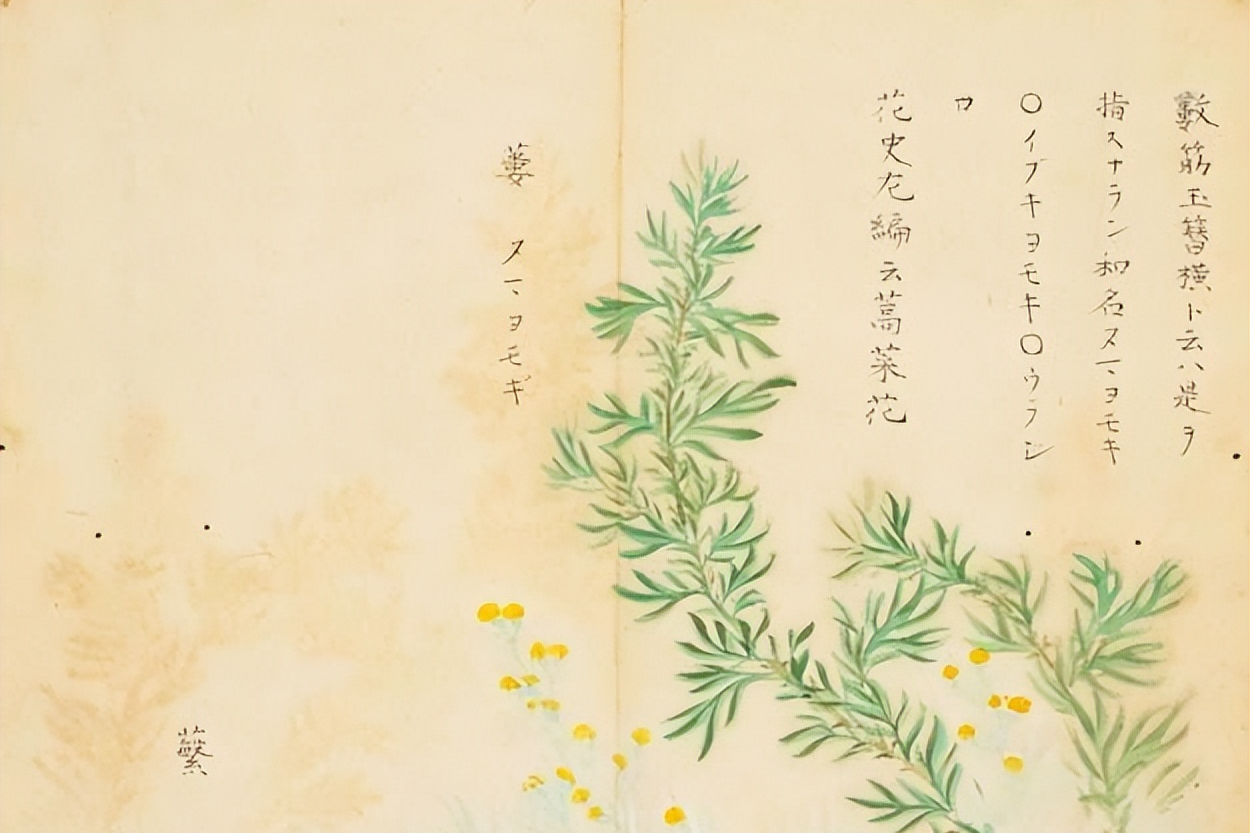 筋玉簪横ト云ハ是ヲ
指スナラン和名スマヨモキ
〇イブキヨモキ〇ウラジ
花史左編云萵菜花
蔞 スマヨモギ